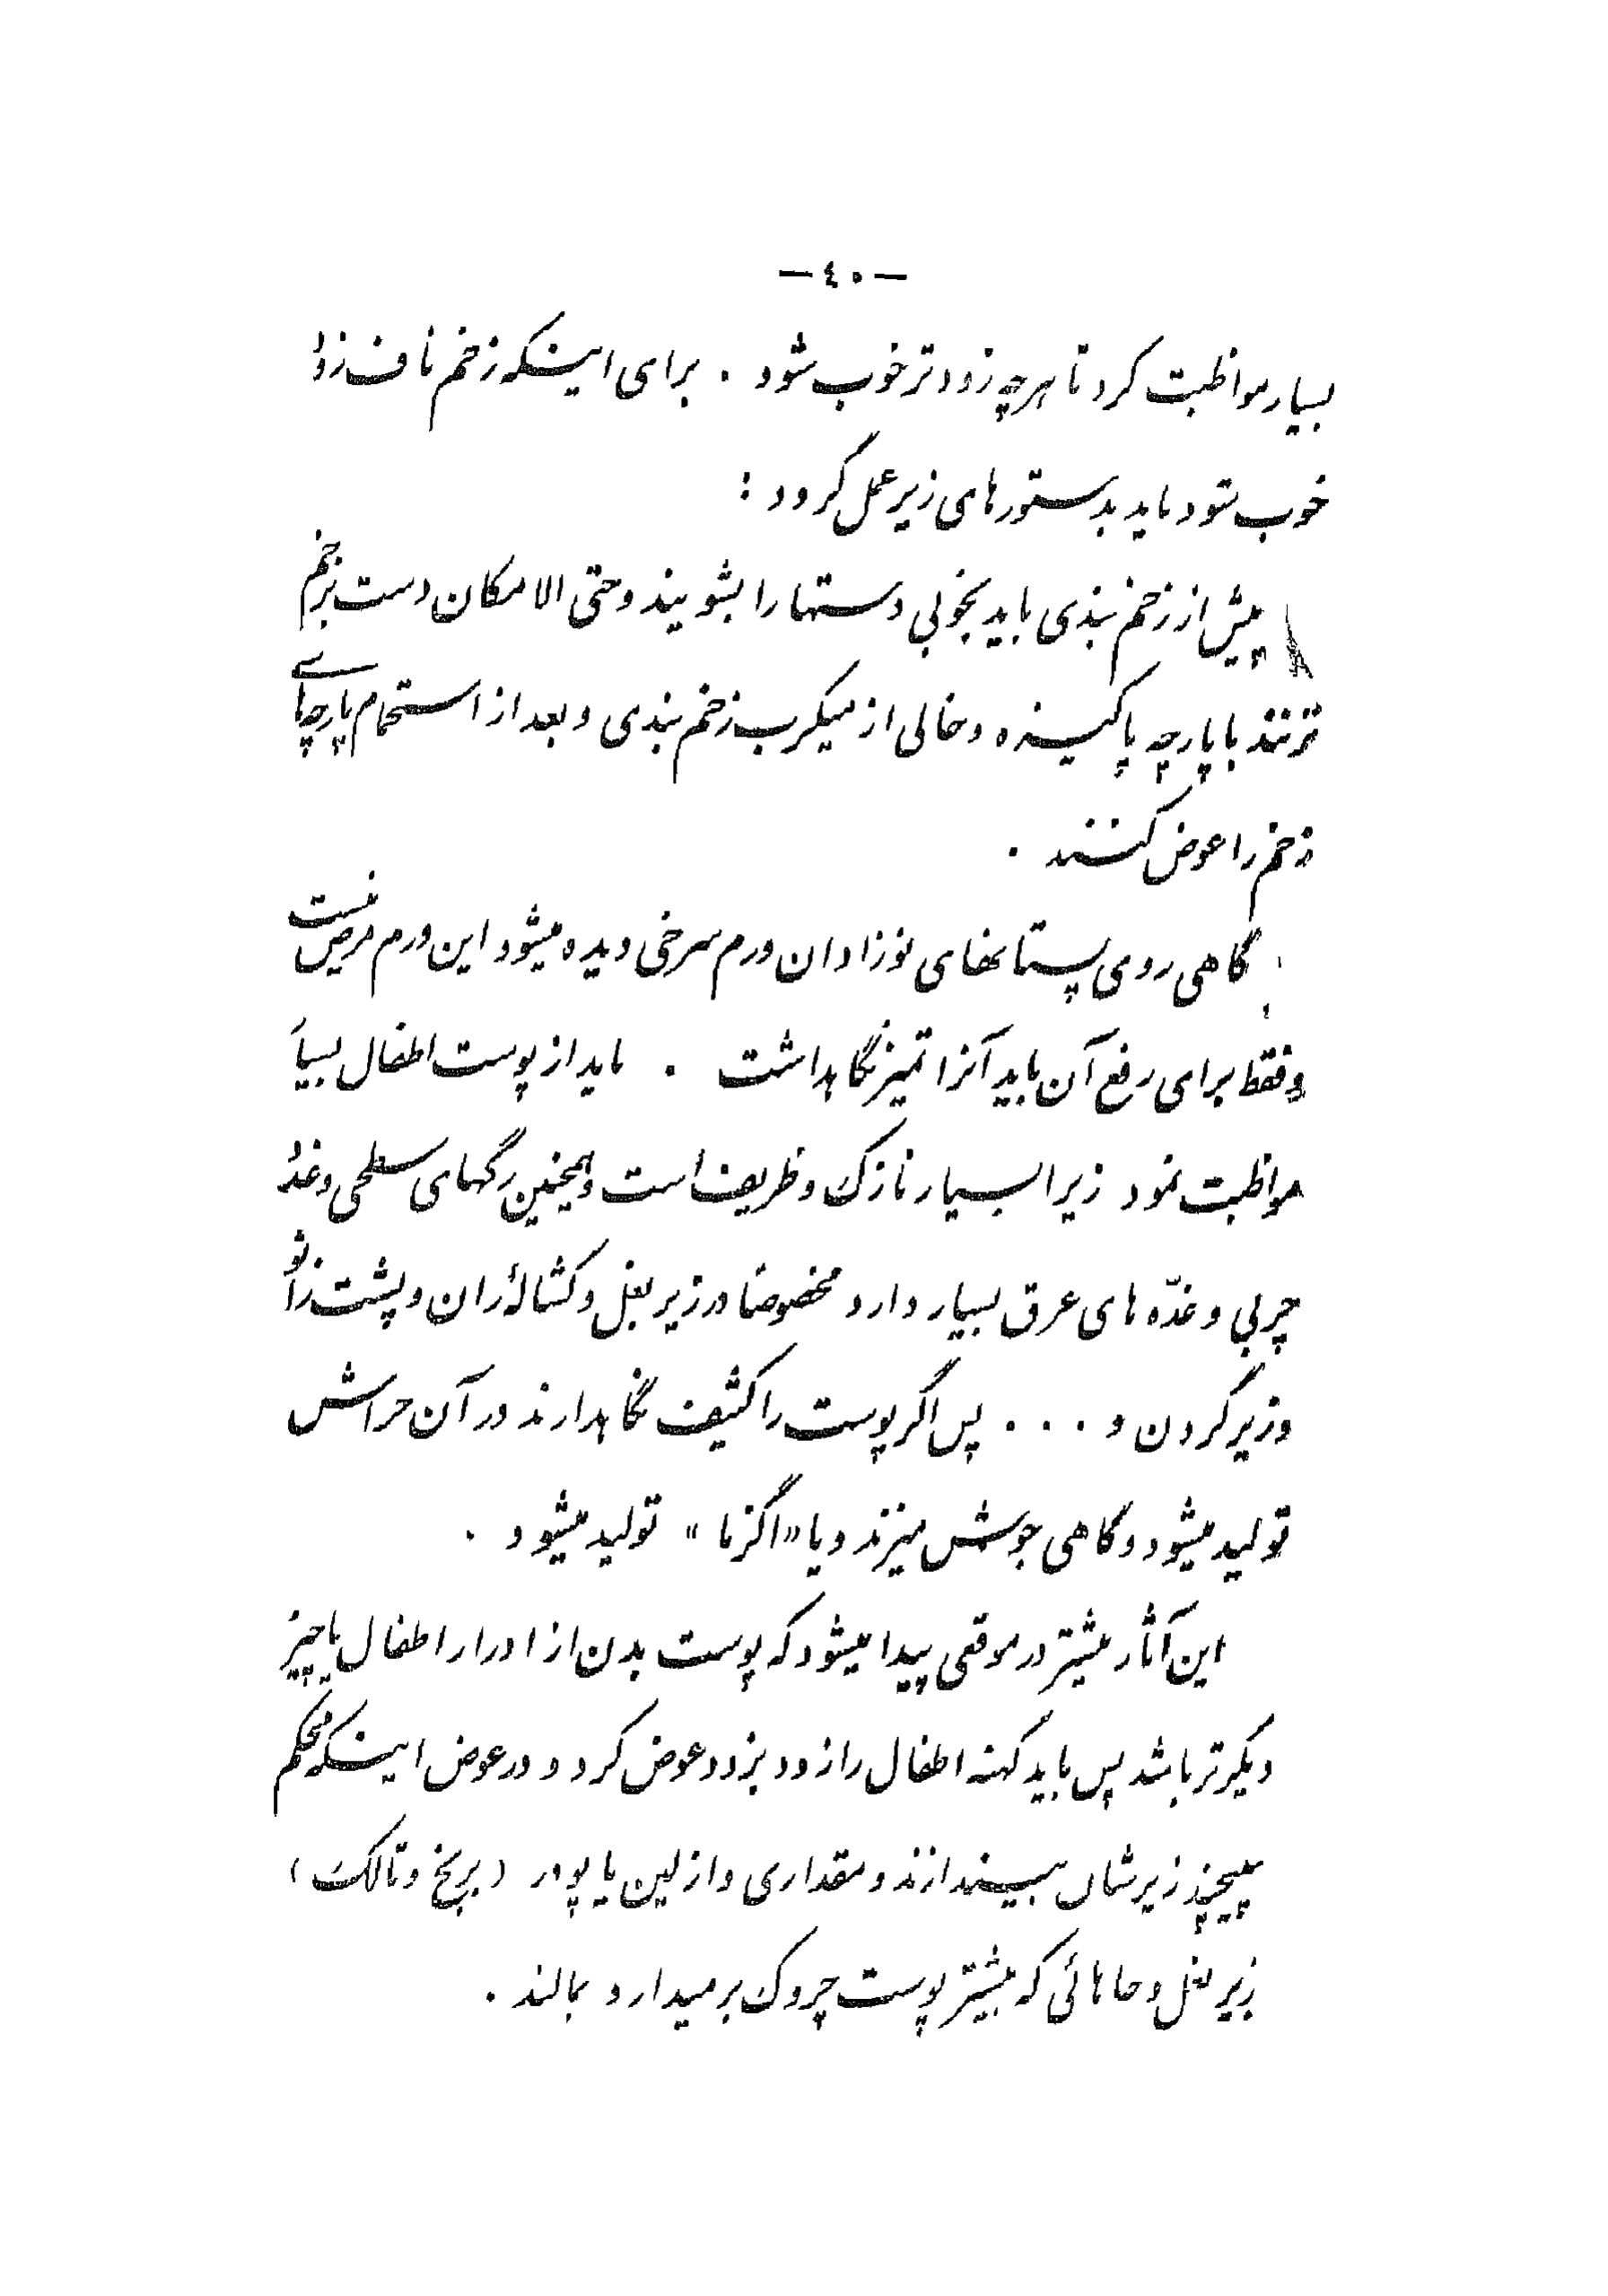 —٤٠—
بسیار مواظبت کرد تا هرچه زودتر خوب شود . برای اینکه زخم ناف زود
خوب شود باید بدستورهای زیر عمل کرد :
پیش از زخم بندی باید بخوبی دستها را بشویند و حتی الامکان دست بزخم
نزنند با پارچه پاکیزه و خالی از میکرب زخم بندی و بعد از استحمام پارچهای
زخم را عوض کنند .
گاهی روی پستانهای نوزادان ورم سرخی دیده میشود این ورم مرض نیست
و فقط برای رفع آن باید آنرا تمیز نگاهداشت . باید از پوست اطفال بسیار
مواظبت نمود زیرا بسیار نازک و ظریف است و همچنین رگهای سطحی و غدد
چربی و غدّه های عرق بسیار دارد مخصوصا در زیر بغل و کشالهٔ ران و پشت زانو
و زیر گردن و . . . پس اگر پوست را کثیف نگاهدارند در آن خراش
تولید میشود و گاهی جوش میزند و یا «اگزما» تولید میشود .
این آثار بیشتر در موقعی پیدا میشود که پوست بدن از ادرار اطفال یا چیز
دیگر تر باشد پس باید کهنه اطفال را زود بزود عوض کرد و در عوض اینکه محکم
بپیچند زیرشان بیندازند و مقداری وازلین یا پودر (برنج و تالک)
زیر بغل و جاهائی که بیشتر پوست چروک برمیدارد بمالند .